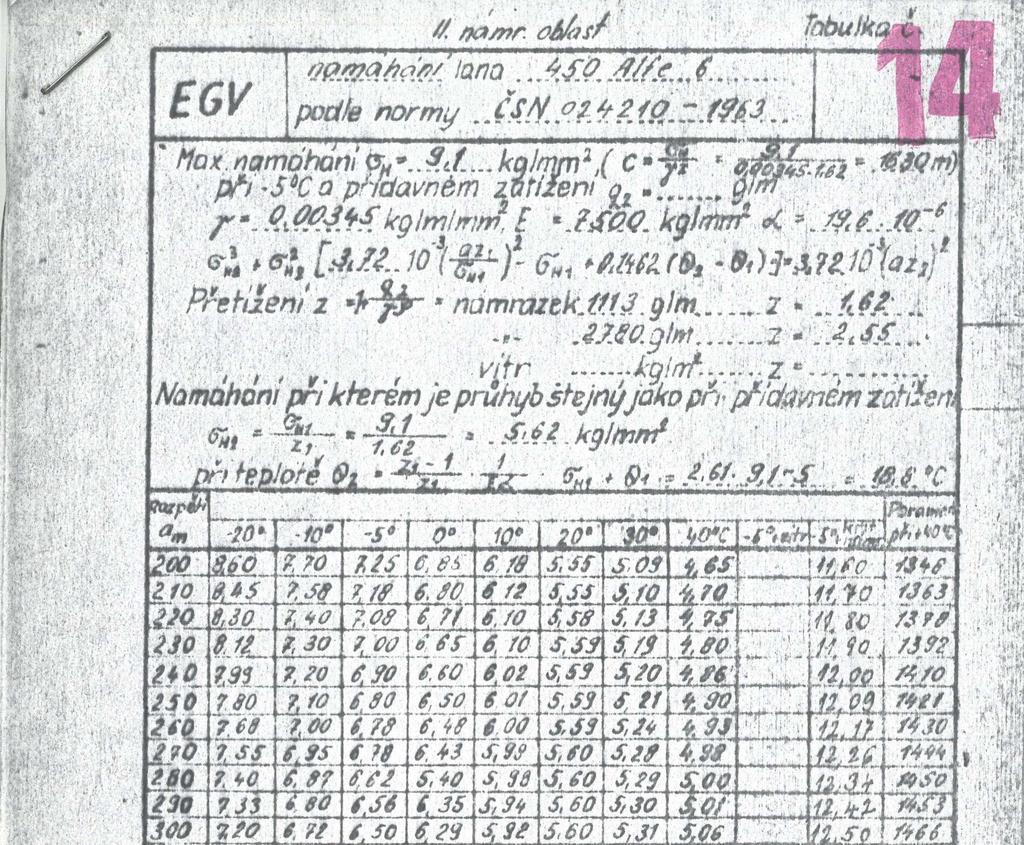 II. námr. oblast Tabulka č. 14
EGV
namáhání lana 450 AlFe 6
podle normy ČSN 024210 - 1963
Max. namáhání σH = 9,1 kg/mm², ( C = = 9,1 / 0,00345·1,62 = 1630 m)
při -5°C a přídavném zatížení q2 = ........ g/m
γ = 0,00345 kg/m/mm² E = 7500 kg/mm² α = 19,6 · 10⁻⁶
σH2³ + σH2² [ 3,72 · 10⁻³ (az1/σH1)² - σH1 + 0,1462 (θ2 - θ1) ] = 3,72 10⁻³ (az2)²
Přetížení z = = námrazek 1113 g/m z = 1,62
-"- 2780 g/m z = 2,55
vítr ........ kg/m² z = ........
Namáhání při kterém je průhyb stejný jako při přídavném zatížení
σH2 = σH1/z1 = 9,1/1,62 = 5,62 kg/mm²
při teplotě θ2 = z1-1/z1 · 1/ · σH1 + θ1 = 2,61 · 9,1 - 5 = 18,8 °C
Rozpětí am -20° -10° -5° 0° 10° 20° 30° 40°C -5°+vítr -5° Param. při +40°C
200 8,60 7,70 7,25 6,85 6,18 5,55 5,09 4,65 11,60 1346
210 8,45 7,58 7,18 6,80 6,12 5,55 5,10 4,70 11,70 1363
220 8,30 7,40 7,08 6,71 6,10 5,58 5,13 4,75 11,80 1378
230 8,12 7,30 7,00 6,65 6,10 5,59 5,19 4,80 11,90 1392
240 7,99 7,20 6,90 6,60 6,02 5,59 5,20 4,86 12,00 1410
250 7,80 7,10 6,80 6,50 6,01 5,59 5,21 4,90 12,09 1421
260 7,68 7,00 6,78 6,48 6,00 5,59 5,24 4,93 12,17 1430
270 7,55 6,95 6,78 6,43 5,99 5,60 5,28 4,98 12,26 1444
280 7,40 6,87 6,62 5,40 5,98 5,60 5,29 5,00 12,34 1450
290 7,33 6,80 6,56 6,35 5,94 5,60 5,30 5,01 12,42 1453
300 7,20 6,72 6,50 6,29 5,92 5,60 5,31 5,06 12,50 1466